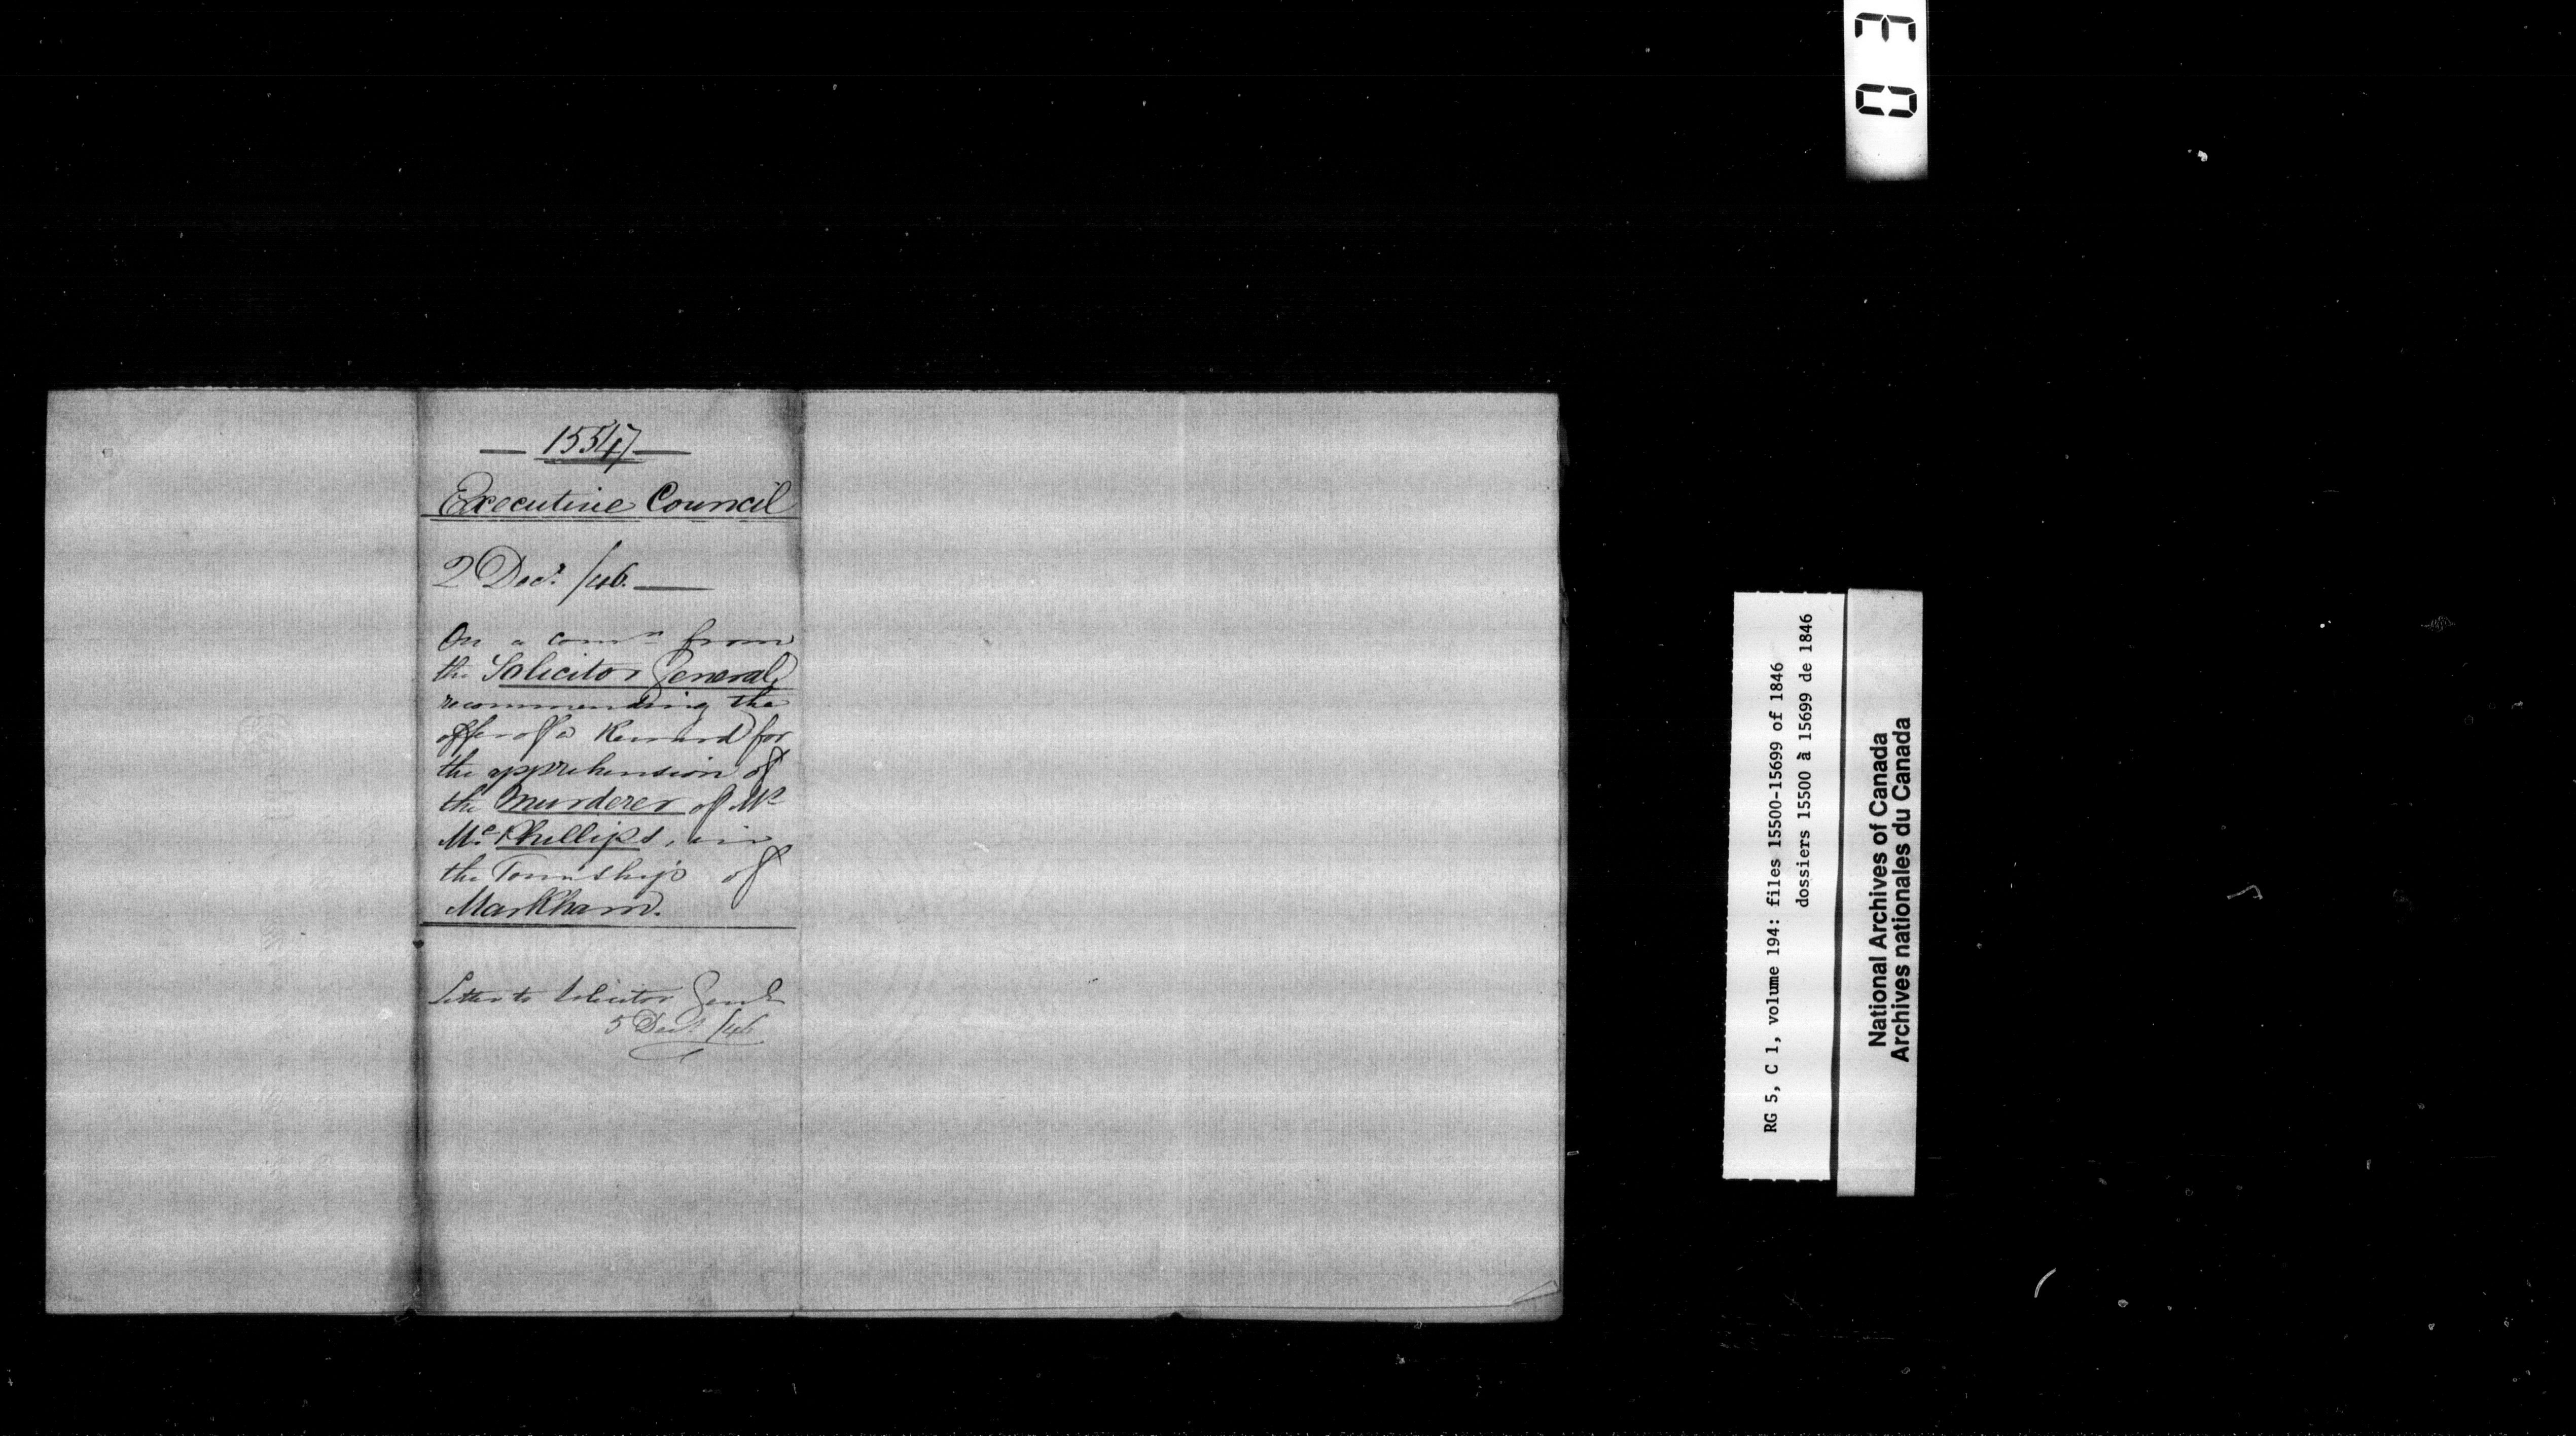 15547
Executive Council
2 Decr. /46.
On a comn from
the Solicitor General,
recommending the
offer of a Reward for
the apprehension of
the Murderer of Mr
Mc.Phillips, in
the Township of
Markham.
Letter to Solicitor Genl
5 Decr. /46
RG 5, C 1, volume 194: files 15500-15699 of 1846
dossiers 15500 à 15699 de 1846
National Archives of Canada
Archives nationales du Canada
03